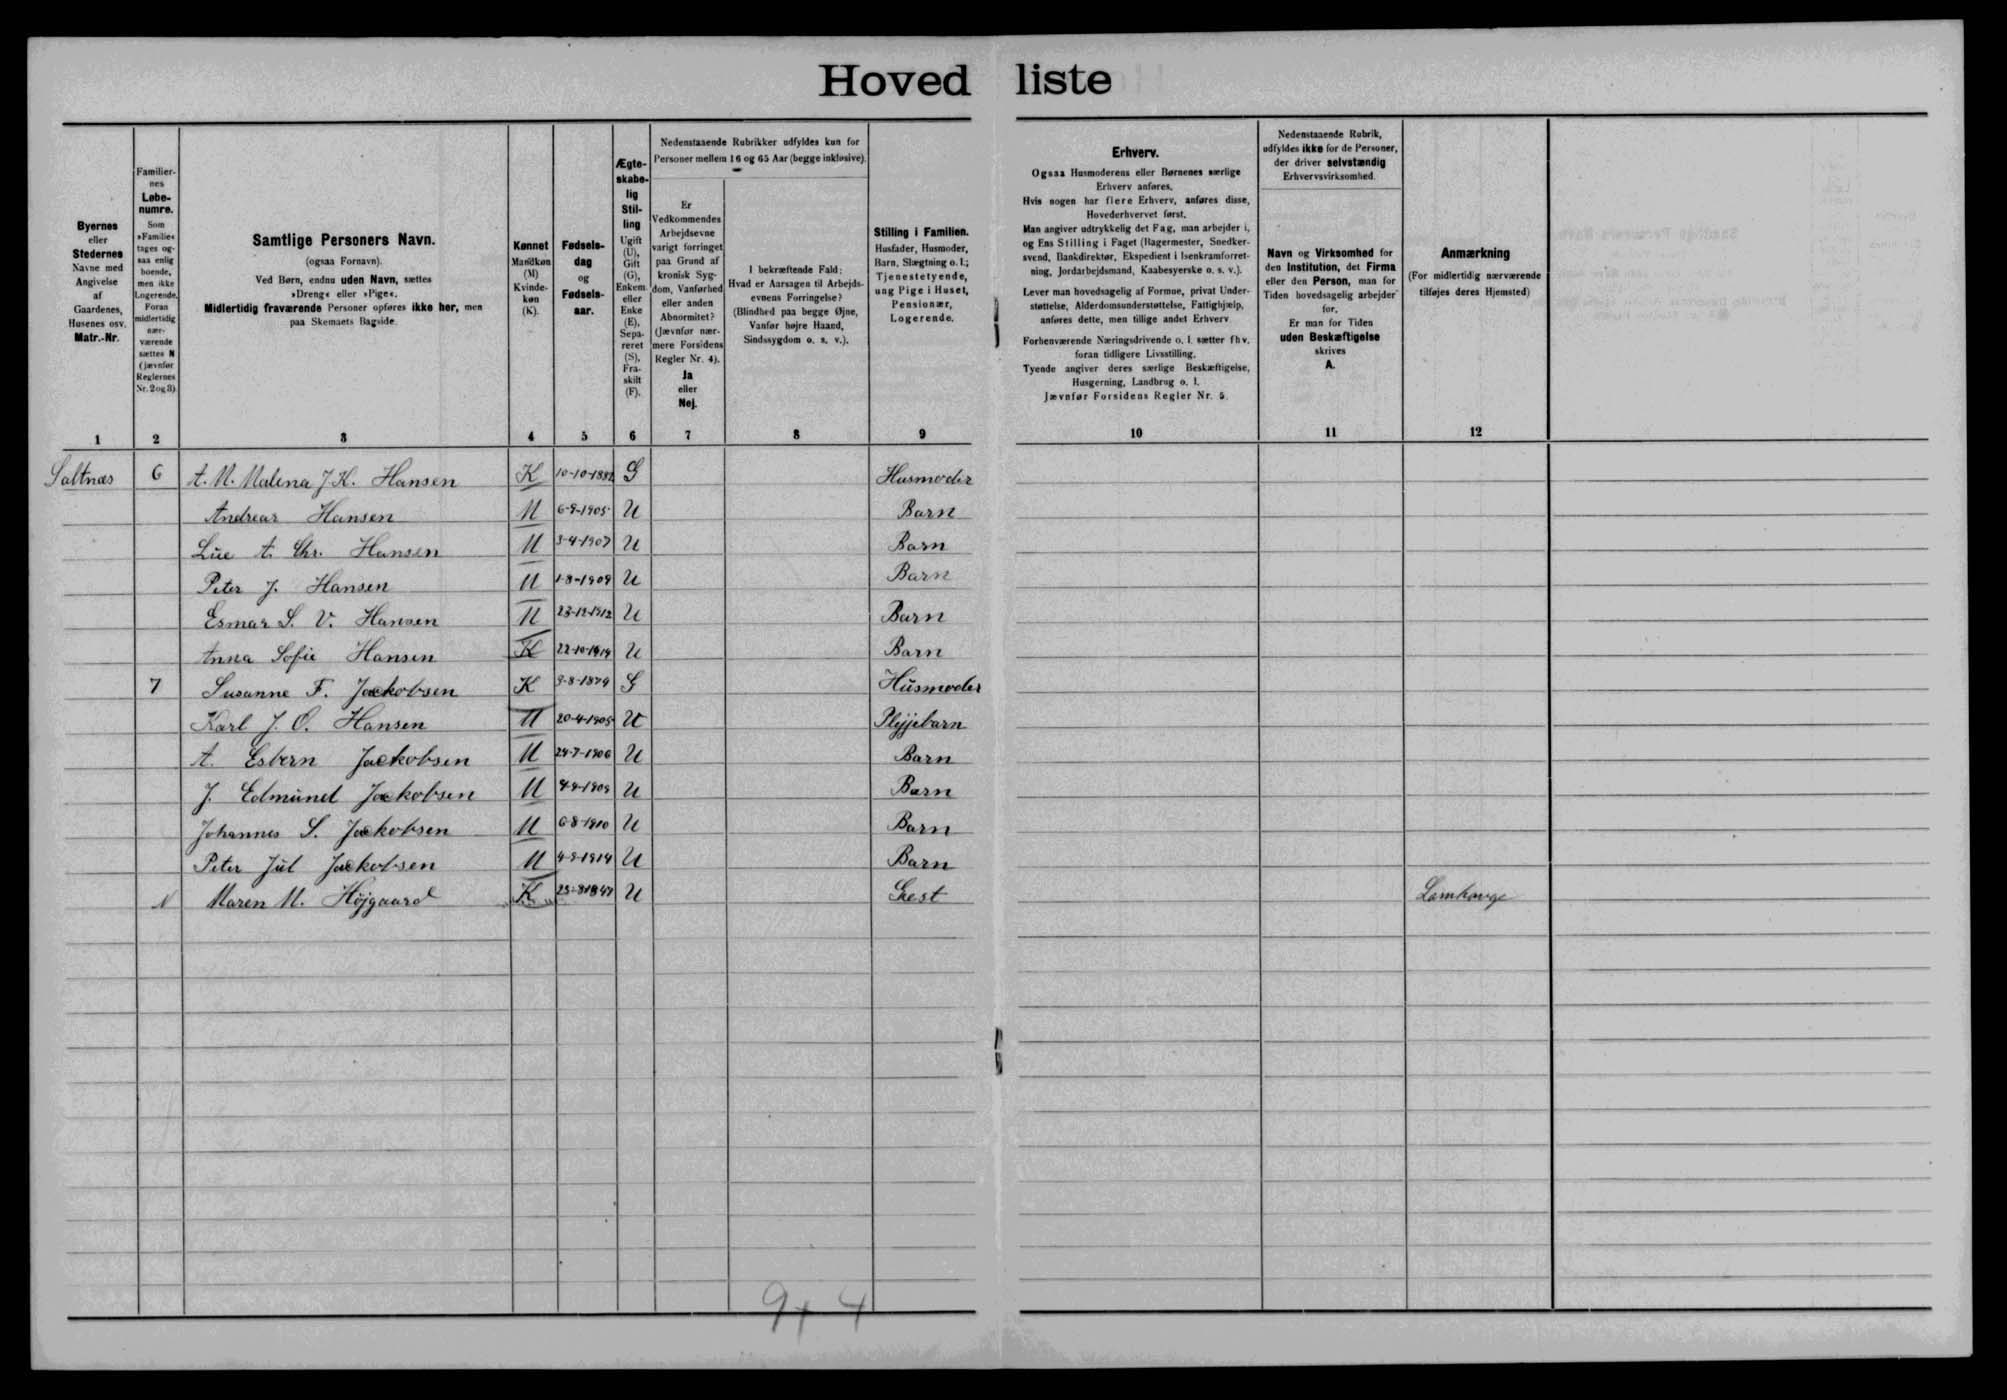 Hovedliste
Byernes
eller
Stedernes
Navne med
Angivelse
af
Gaardenes,
Husenes osv.
Matr.-Nr.
Familier-
nes
Løbe-
numre.
Som
»Familie«
tages og-
saa enlig
boende,
men ikke
Logerende.
Foran
midlertidig
nær-
værende
sættes N
(jævnfør
Reglernes
Nr. 2 og 3).
Samtlige Personers Navn.
(ogsaa Fornavn).
Ved Børn, endnu uden Navn, sættes
»Dreng« eller »Pige«.
Midlertidig fraværende Personer opføres ikke her, men
paa Skemaets Bagside.
Kønnet
Mandkøn
(M)
Kvinde-
køn
(K).
Fødsels-
dag
og
Fødsels-
aar.
Ægte-
skabe-
lig
Stil-
ling
Ugift
(U),
Gift
(G),
Enkem.
eller
Enke
(E),
Sepa-
reret
(S),
Fra-
skilt
(F).
Nedenstaaende Rubrikker udfyldes kun for
Personer mellem 16 og 65 Aar (begge inklusive).
Er
Vedkommendes
Arbejdsevne
varigt forringet
paa Grund af
kronisk Syg-
dom, Vanførhed
eller anden
Abnormitet?
(Jævnfør nær-
mere Forsidens
Regler Nr. 4).
Ja
eller
Nej.
I bekræftende Fald:
Hvad er Aarsagen til Arbejds-
evnens Forringelse?
(Blindhed paa begge Øjne,
Vanfør højre Haand,
Sindssygdom o. s. v.).
Stilling i Familien.
Husfader, Husmoder,
Barn, Slægtning o. l.;
Tjenestetyende,
ung Pige i Huset,
Pensionær,
Logerende.
Erhverv.
Ogsaa Husmoderens eller Børnenes særlige
Erhverv anføres.
Hvis nogen har flere Erhverv, anføres disse,
Hovederhvervet først.
Man angiver udtrykkelig det Fag, man arbejder i,
og Ens Stilling i Faget (Bagermester, Snedker-
svend, Bankdirektør, Ekspedient i Isenkramforret-
ning, Jordarbejdsmand, Kaabesyerske o. s. v.).
Lever man hovedsagelig af Formue, privat Under-
støttelse, Alderdomsunderstøttelse, Fattighjælp,
anføres dette, men tillige andet Erhverv
Forhenværende Næringsdrivende o. l. sætter fhv.
foran tidligere Livsstilling.
Tyende angiver deres særlige Beskæftigelse,
Husgerning, Landbrug o. l.
Jævnfør Forsidens Regler Nr. 5.
Nedenstaaende Rubrik,
udfyldes ikke for de Personer,
der driver selvstændig
Erhvervsvirksomhed.
Navn og Virksomhed for
den Institution, det Firma
eller den Person, man for
Tiden hovedsagelig arbejder
for.
Er man for Tiden
uden Beskæftigelse
skrives
A.
Anmærkning
(For midlertidig nærværende
tilføjes deres Hjemsted)
1 2 3 4 5 6 7 8 9 10 11 12
Saltnæs 6 A. M. Malena J. K. Hansen K 10-10-1882 G Husmoder
Andreas Hansen M 6-9-1905 U Barn
A. Chr. Hansen M 3-4-1907 U Barn
Peter J. Hansen M 1-8-1909 U Barn
Esmar S. V. Hansen M 23-12-1912 U Barn
Anna Sofie Hansen K 22-10-1914 U Barn
7 Susanne F. Jackobsen K 9-8-1879 G Husmoder
Karl J. O. Hansen M 20-4-1905 U Plejjebarn
A. Esbern Jackobsen M 24-7-1906 U Barn
J. Edmund Jackobsen M U Barn
Johannes S. Jackobsen M 6-8-1910 U Barn
Peter Jul Jackobsen M 4-9-1914 U Barn
N Maren M. Højgaard K 25-8-1847 U Gest Lamhauge
9+4